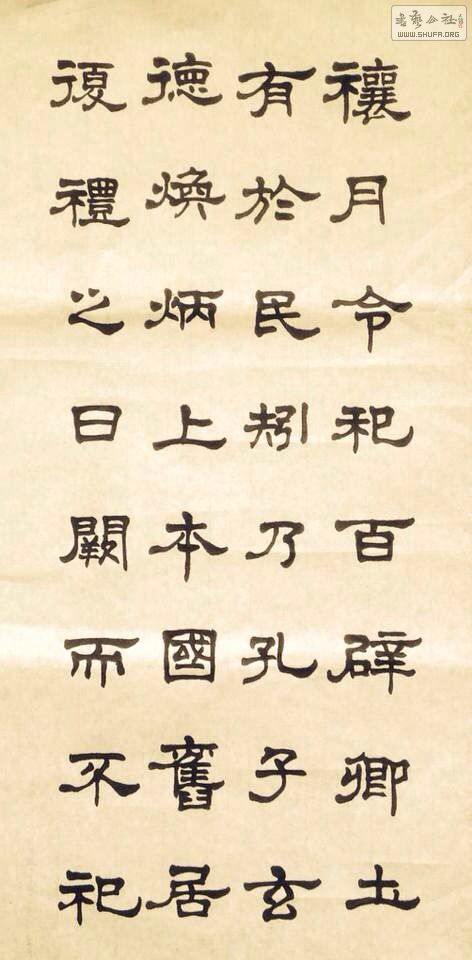 禳月令祀百辟卿土
有於民矧乃孔子玄
德煥炳上本國舊居
復禮之日闕而不祀
書艺公社
WWW.SHUFA.ORG